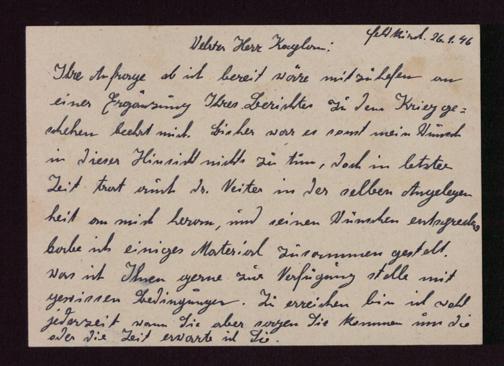 Feldkirch. 26.1.46
Herr
Ihre Anfrage ob ich bereit wäre mitzuhelfen an
einer Ergänzung Ihres Berichtes zu dem Kriegge=
schehen beehrt mich. Bisher war es sonst mein Wunsch
in dieser Hinsicht nichts zu tun, doch in letzter
Zeit trat auch Dr. Veiter in der selben Angelegen
heit an mich heran, und seinen Wünschen entsprechend
habe ich einiges Material zusammen gestellt.
was ich Ihnen gerne zur Verfügung stelle mit
gewissen Bedingungen. Zu erreichen bin ich wohl
jederzeit wann Sie aber sagen Sie kommen um die
oder die Zeit erwarte ich Sie.